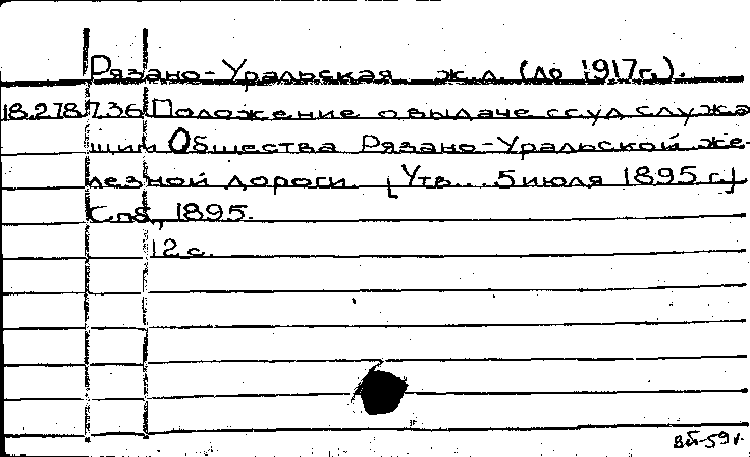 Рязано-Уральская ж.д. (до 1917г.).
18.278.7.36 Положение о выдаче ссуд служа
щим Общества Рязано-Уральской же-
лезной дороги. [Утв... 5 июля 1895 г.]
Спб., 1895.
12 с.